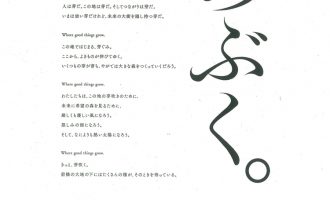 ぶく。
人は芽だ。この地は芽だ。そしてつながりは芽だ。
いまは 芽だけれど、未来の大樹を隠し持つ芽だ。
Where good things grow.
この場ではじまる、芽ぐみ。
ここから、よきものが伸びてゆく。
いくつもの芽が育ち、やがては大きな森をつくっていくだろう。
Where good things grow.
わたしたちは、この地の芽吹きのために、
未来に希望の森を見るために、
厳しくも優しい風になろう。
慈しみの雨になろう。
そして、なによりも熱い太陽になろう。
Where good things grow.
きっと、芽吹く。
前橋の大地の下にはたくさんの種が、そのときを待っている。